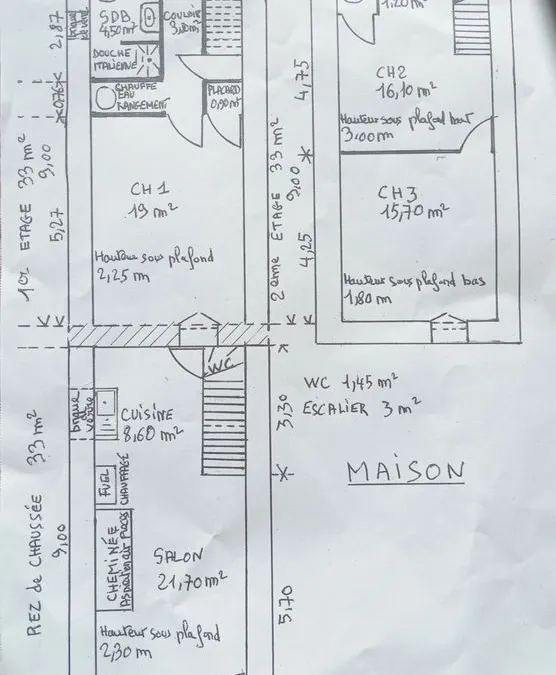 2,87
brique de verre
SDB
4,50m²
COULOIR
DOUCHE
ITALIENNE
0,76
CHAUFFE
EAU
RANGEMENT
PLACARD
0,90m²
1er ETAGE 33 m²
9,00
5,27
CH 1
19 m²
Hauteur sous plafond
2,25 m
2 ème ETAGE 33 m²
9,00
4,75
4,25
1,20m²
CH2
16,10 m²
Hauteur sous plafond haut
3,00m
CH3
15,70 m²
Hauteur sous plafond bas
1,80m
WC
REZ de CHAUSSÉE 33 m²
9,00
brique de verre
CUISINE
8,60 m²
FUEL
CHAUFFAGE
CHEMINÉE
SALON
21,70 m²
Hauteur sous plafond
2,30m
3,30
5,70
WC 1,45 m²
ESCALIER 3 m²
MAISON